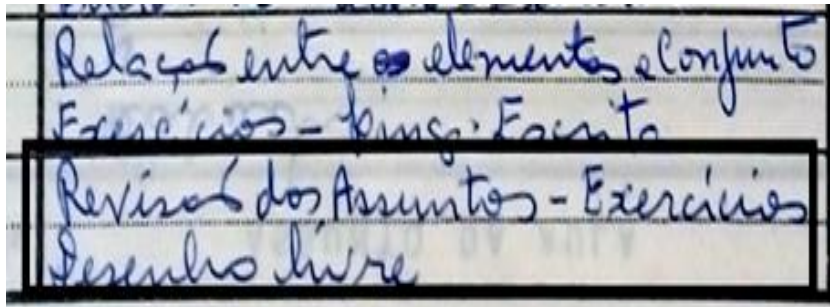 Relação entre os elementos e Conjunto
Exercícios - Ling. Escrita
Revisão dos Assuntos - Exercícios
Desenho livre